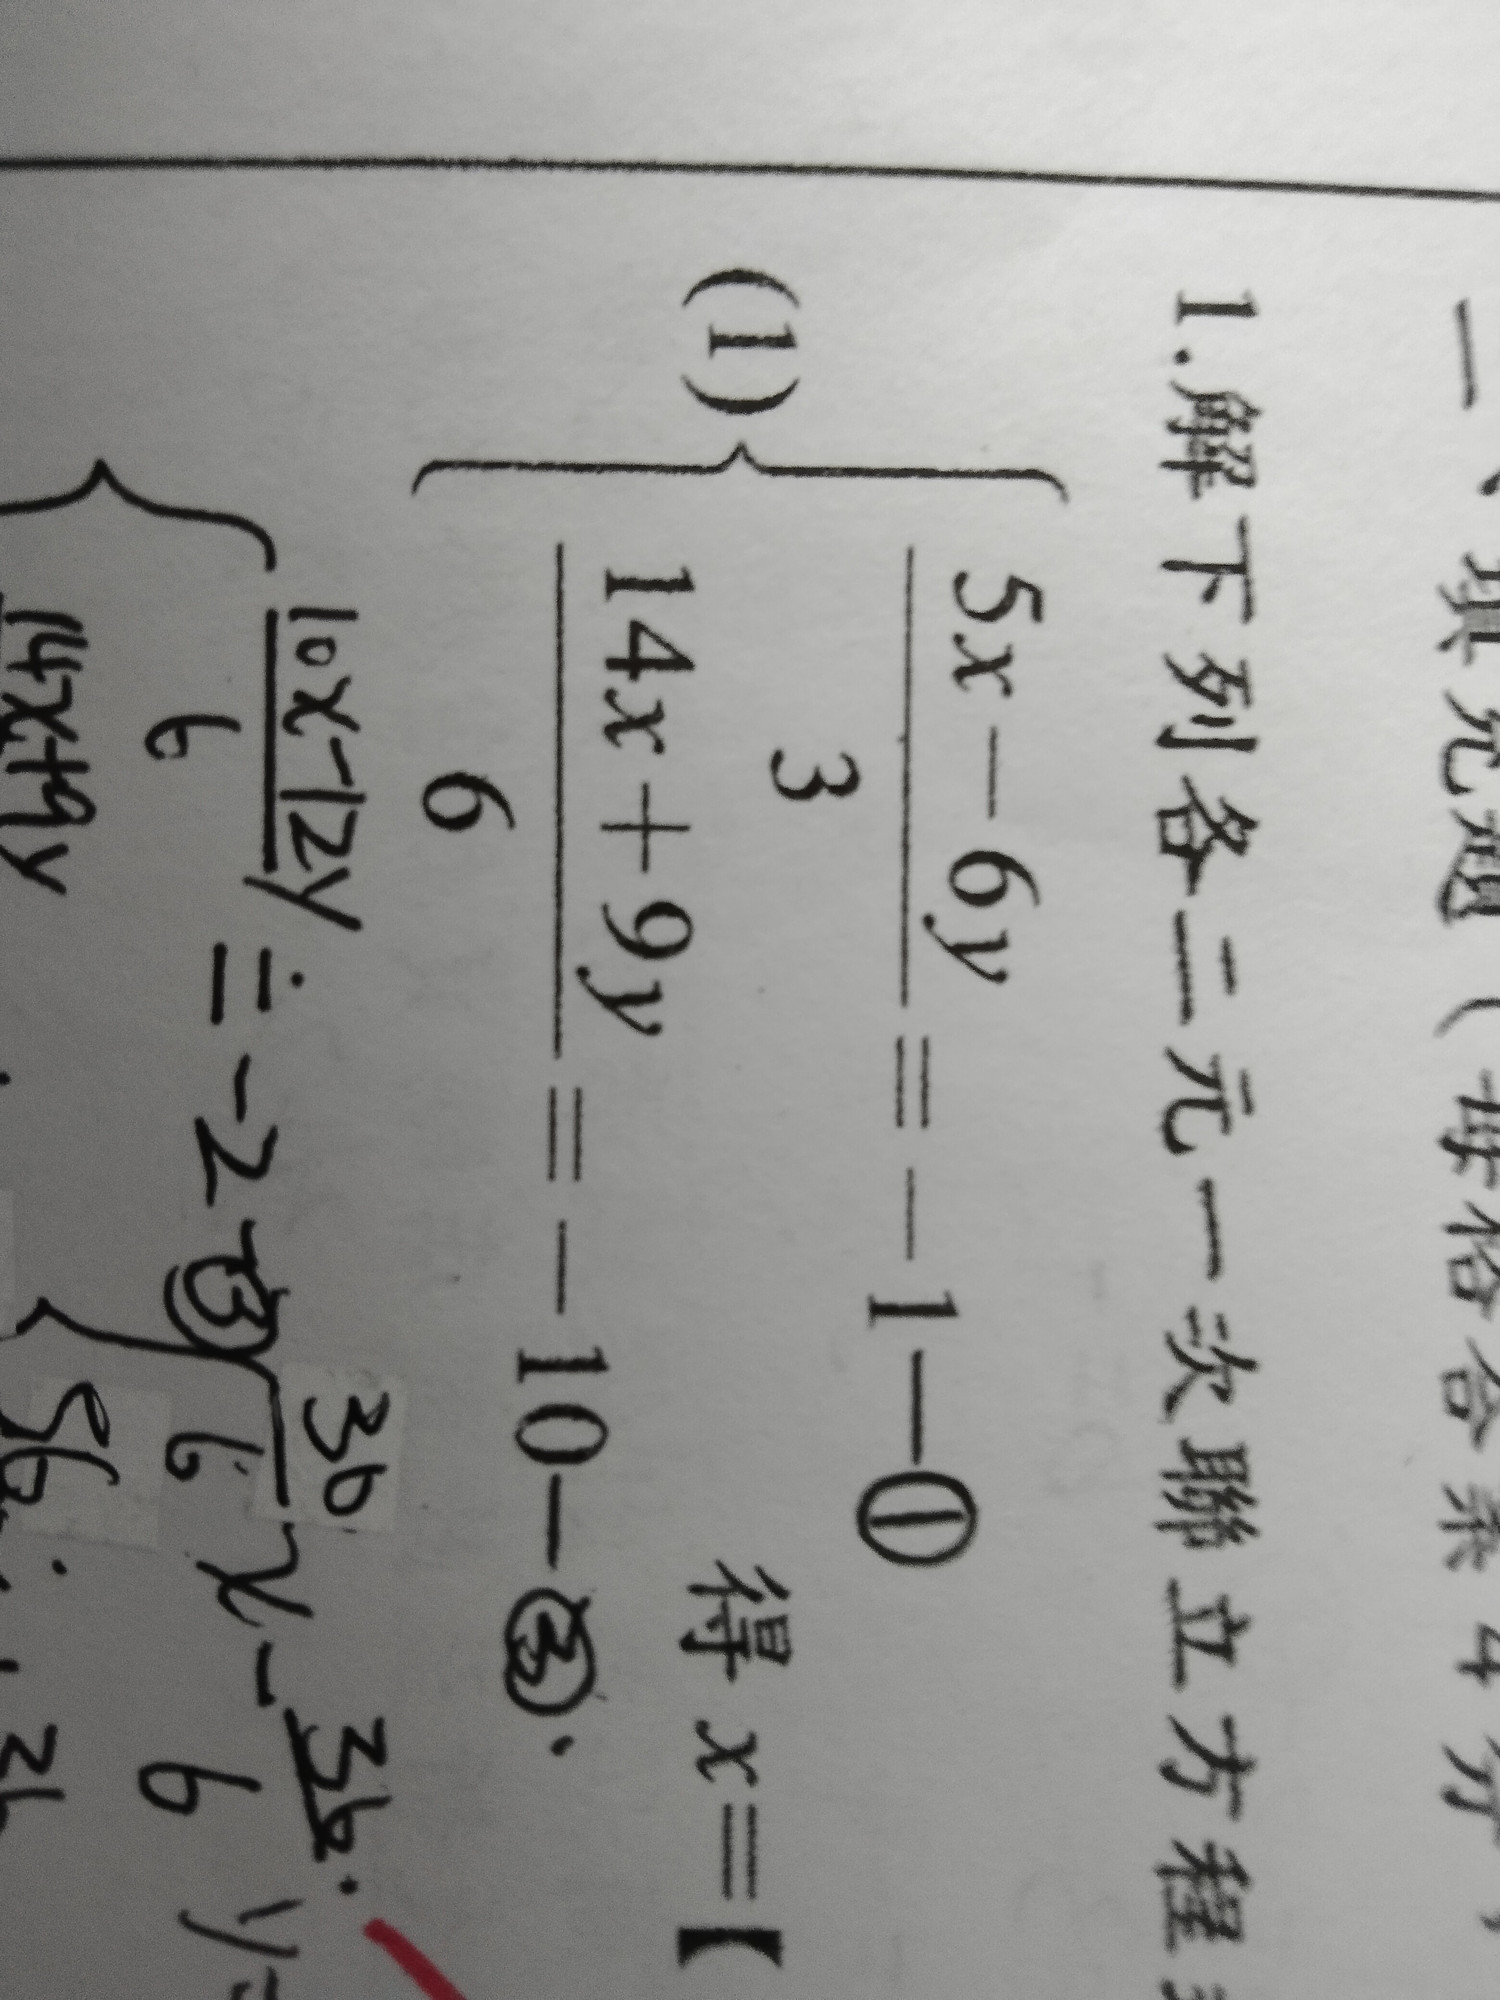 一、填充題(每格答案4分,
1.解下列各二元一次聯立方程
(1) { (5x-6y)/3 = -1 —①
(14x+9y)/6 = -10 —③.
得 x=【
(10x-12y)/6 = -2 -③
14x+9y
36/6 x - 36/6 y=
56